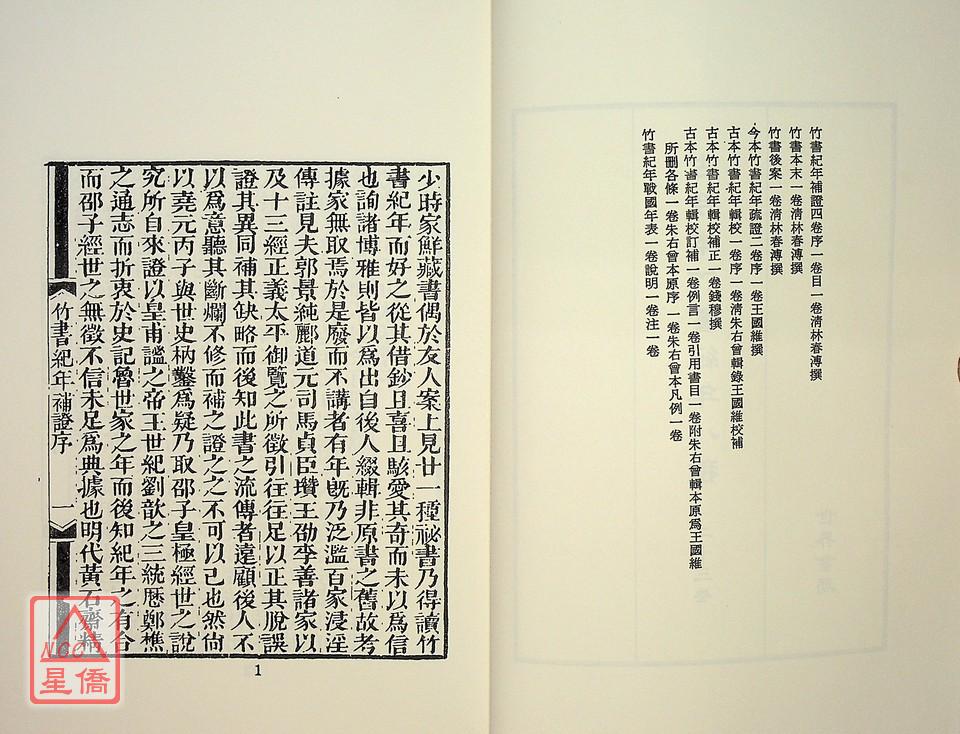 竹書紀年補證四卷序一卷目一卷清林春溥撰
竹書本末一卷清林春溥撰
竹書後案一卷清林春溥撰
今本竹書紀年疏證二卷序一卷王國維撰
古本竹書紀年輯校一卷序一卷清朱右曾輯錄王國維校補
古本竹書紀年輯校補正一卷錢穆撰
古本竹書紀年輯校訂補一卷例言一卷引用書目一卷附朱右曾輯本原爲王國維
所刪各條一卷朱右曾本原序一卷朱右曾本凡例一卷
竹書紀年戰國年表一卷說明一卷注一卷
少時家鮮藏書偶於友人案上見廿一種祕書乃得讀竹
書紀年而好之從其借鈔且喜且駭愛其奇而未以爲信
也詢諸博雅則皆以爲出自後人綴輯非原書之舊故考
據家無取焉於是廢而不講者有年旣乃泛濫百家浸淫
傳註見夫郭景純酈道元司馬貞臣瓚王劭李善諸家以
及十三經正義太平御覽之所徵引往往足以正其脫誤
證其異同補其缺略而後知此書之流傳者遠顧後人不
以爲意聽其斷爛不修而補之證之之不可以已也然尙
以堯元丙子與世史枘鑿爲疑乃取邵子皇極經世之說
究所自來證以皇甫謐之帝王世紀劉歆之三統厯鄭樵
之通志而折衷於史記魯世家之年而後知紀年之有合
而邵子經世之無徵不信未足爲典據也明代黃石齋精
竹書紀年補證序
一
1
NCC
星僑